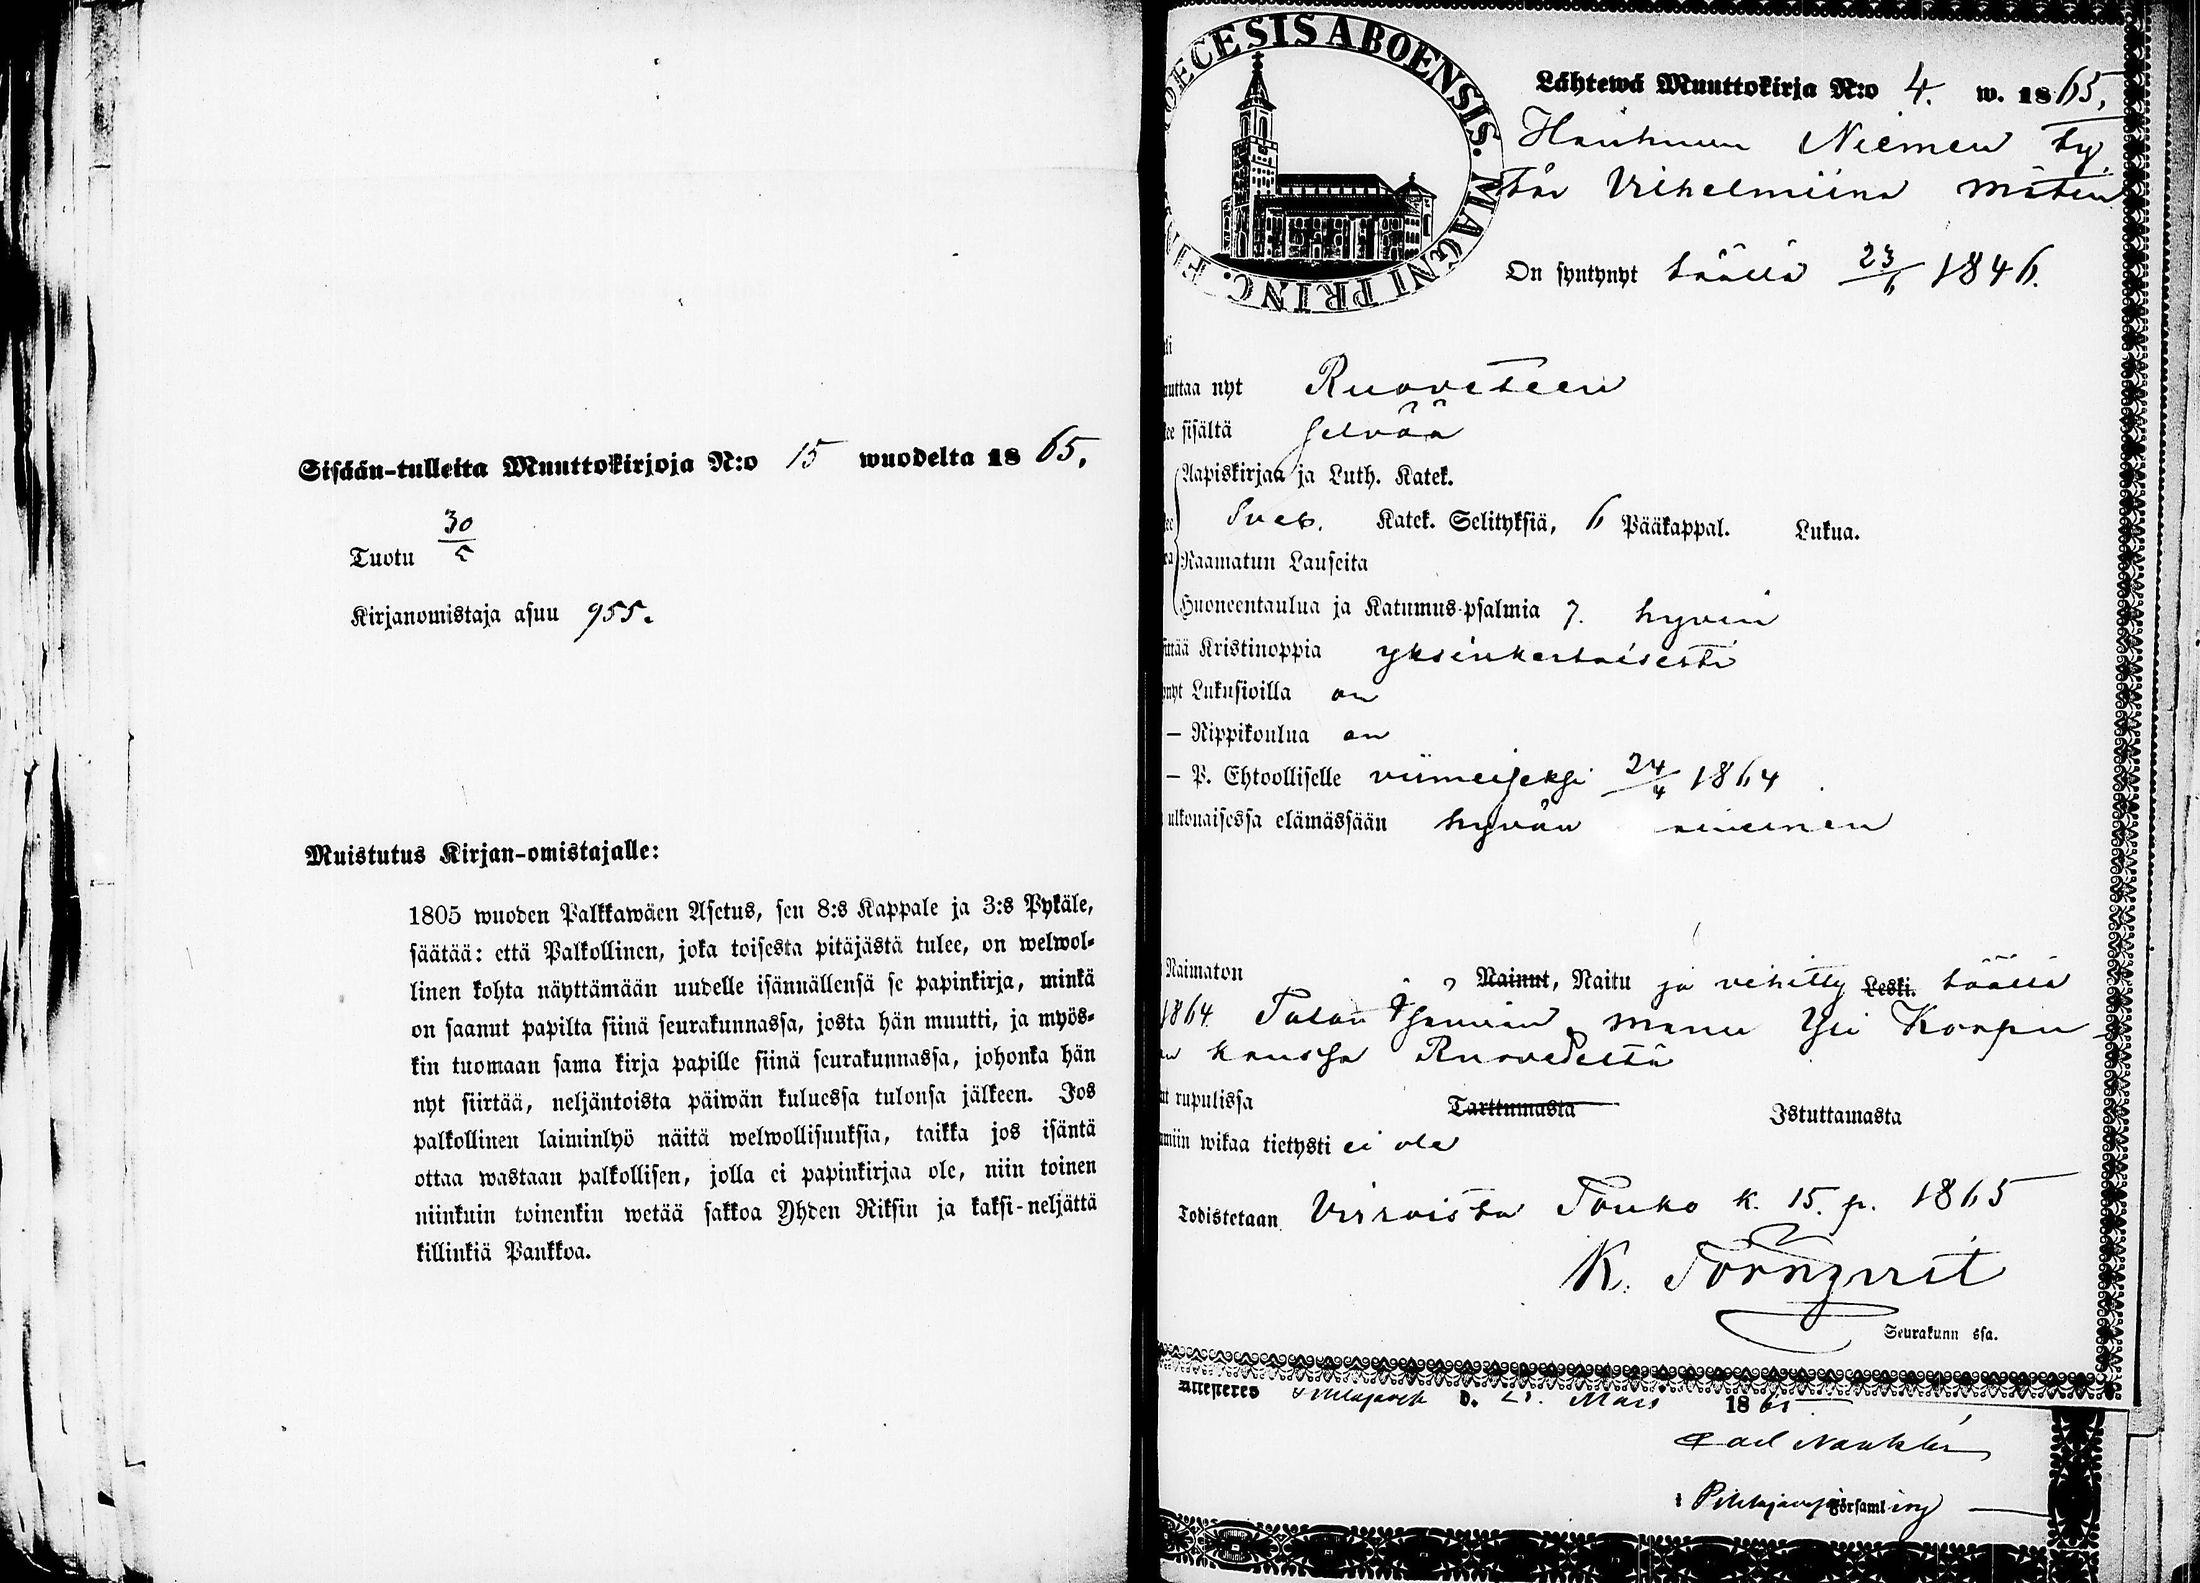 Sisään-tulleita Muuttokirjoja N:o 15 wuodelta 1865.
Tuotu 30/5
Kirjanomistaja asuu 955.
Muistutus Kirjan-omistajalle:
1805 wuoden Palkkawäen Asetus, sen 8:s Kappale ja 3:s Pykäle,
säätää: että Palkollinen, joka toisesta pitäjästä tulee, on welwol-
linen kohta näyttämään uudelle isännällensä se papinkirja, minkä
on saanut papilta siinä seurakunnassa, josta hän muutti, ja myös-
kin tuomaan sama kirja papille siinä seurakunnassa, johonka hän
nyt siirtää, neljäntoista päiwän kuluessa tulonsa jälkeen. Jos
palkollinen laiminlyö näitä welwollisuuksia, taikka jos isäntä
ottaa wastaan palkollisen, jolla ei papinkirjaa ole, niin toinen
niinkuin toinenkin wetää sakkoa Yhden Riksin ja kaksi-neljättä
killinkiä Pankkoa.
OECESIS ABOENSIS. MAGNI PRINC.
Lähtewä Muuttokirja N:o 4. w. 1865,
Niemen ty
tär Vilhelmiina
On syntynyt täällä 23/6 1846.
uuttaa nyt Ruoveteen
ee sisältä selvää
Aapiskirjaa ja Luth. Katek.
Sveb. Katek. Selityksiä, 6 Pääkappal. Lukua.
Raamatun Lauseita
Huoneentaulua ja Katumus-psalmia 7. hyvin
ittää Kristinoppia yksinkertaisesti
ynyt Lukusioilla on
– Rippikoulua on
– P. Ehtoolliselle viimeiseksi 24/4 1864
ulkonaisessa elämässään hyvän
Naimaton Nainut, Naitu ja vihitty Leski. täällä
1864 Talon Isännän Yli Korpu
kanssa Ruovedeltä
rupulissa Tarttumasta Istuttamasta
miin wikaa tietysti ei ole
Todistetaan Virroista Touko k. 15. p. 1865
K. Törnqvist
Seurakunn ssa.
Attesteres d. Mars 1865
Carl
i Pihlajavesi Församling